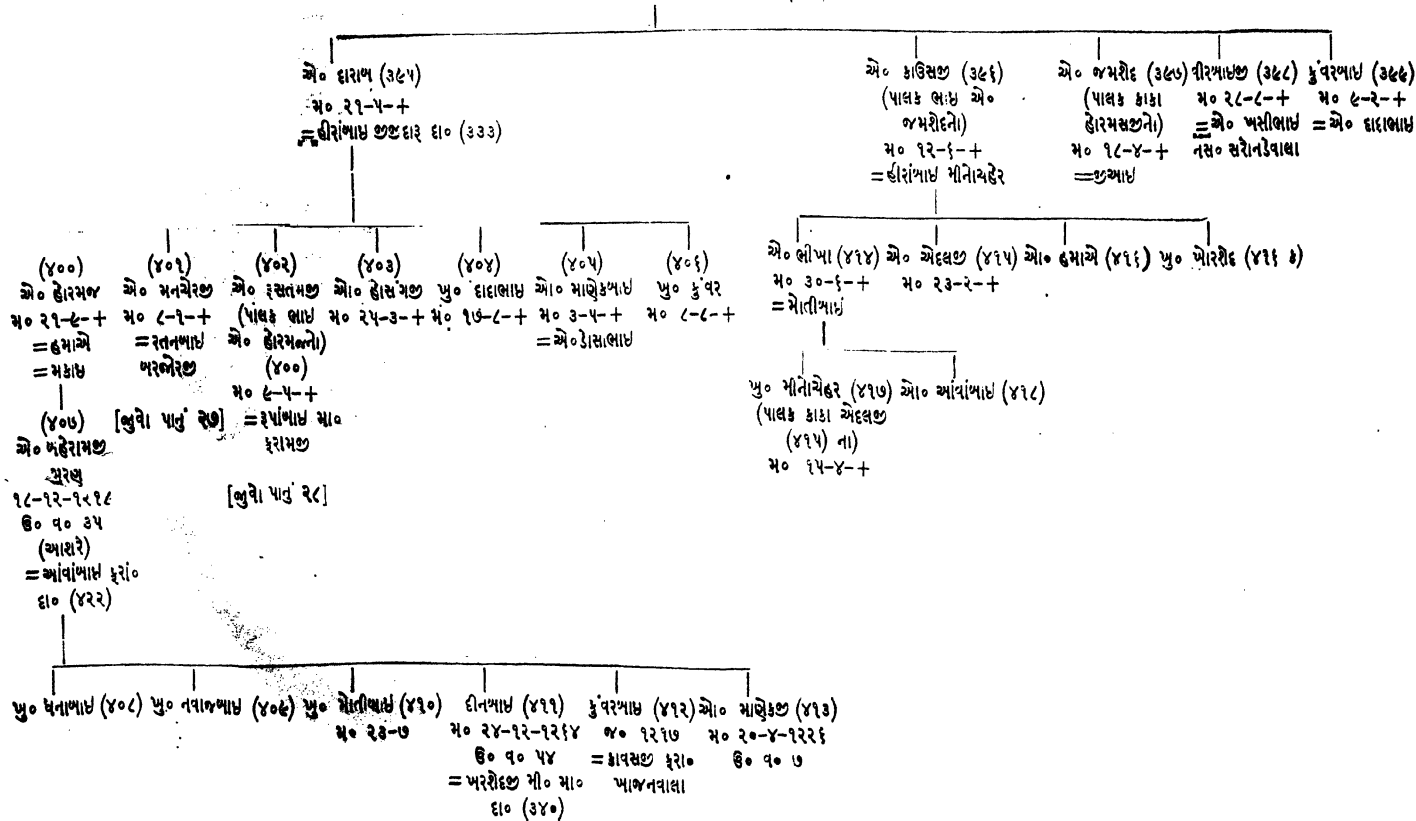 એ૦ દારાબ (૩૯૫)
મ૦ ૨૧-૫-+
=હીરાંબાઇ જીજીદારૂ દા૦ (૩૩૩)
એ૦ કાઉસજી (૩૯૬)
(પાલક ભાઇ એ૦
જમશેદનો)
મ૦ ૧૨-૬-+
=હીરાંબાઇ મીનોચહેર
એ૦ જમશેદ (૩૯૭)
(પાલક કાકા
હોરમસજીનો)
મ૦ ૧૮-૪-+
=જીઆઇ
વીરબાઇજી (૩૯૮)
મ૦ ૨૮-૮-+
=એ૦ ખસીભાઇ
નસ૦ સરોનડેવાલા
કુંવરબાઇ (૩૯૯)
મ૦ ૯-૨-+
=એ૦ દાદાભાઇ
(૪૦૦)
એ૦ હોરમજ
મ૦ ૨૧-૯-+
=હમાએ
=મકાઇ
(૪૦૧)
એ૦ મનચેરજી
મ૦ ૮-૧-+
=રતનબાઇ
બરજોરજી
[જુવો પાનું ૨૭]
(૪૦૨)
એ૦ રૂસતમજી
(પાલક ભાઇ
એ૦ હોરમજનો)
(૪૦૦)
મ૦ ૯-૫-+
=રૂપાંબાઇ મા૦
ફરામજી
[જીવો પાનું ૨૮]
(૪૦૩)
એ૦ હોસંગજી
મ૦ ૨૫-૩-+
(૪૦૪)
ખુ૦ દાદાભાઇ
મ૦ ૧૭-૮-+
(૪૦૫)
ઓ૦ માણેકબાઇ
મ૦ ૩-૫-+
=એ૦ ડોસાભાઇ
(૪૦૬)
ખુ૦ કુંવર
મ૦ ૮-૮-+
(૪૦૭)
એ૦ બહેરામજી
મરણ
૧૮-૧૨-૧૨૧૮
ઉ૦ વ૦ ૩૫
(આશરે)
=આંવાંબાઇ ફરાં૦
દા૦ (૪૨૨)
એ૦ ભીખા (૪૧૪)
મ૦ ૩૦-૬-+
=મોતીબાઇ
એ૦ એદલજી (૪૧૫)
મ૦ ૨૩-૨-+
ઓ૦ હમાએ (૪૧૬)
ખુ૦ ખોરશેદ (૪૧૬ ક)
ખુ૦ મીનોચેહર (૪૧૭)
(પાલક કાકા એદલજી
(૪૧૫) ના)
મ૦ ૧૫-૪-+
ઓ૦ આંવાંબાઇ (૪૧૮)
ખુ૦ ધનાબાઇ (૪૦૮)
ખુ૦ નવાજબાઇ (૪૦૯)
ખુ૦ મોતીબાઇ (૪૧૦)
મ૦ ૨૩-૭
દીનબાઇ (૪૧૧)
મ૦ ૨૪-૧૨-૧૨૬૪
ઉ૦ વ૦ ૫૪
=ખરશેદજી મી૦ મા૦
દા૦ (૩૪૦)
કુંવરબાઇ (૪૧૨)
જ૦ ૧૨૧૭
=કાવસજી ફરા૦
ખાજનવાલા
ઓ૦ માણેકજી (૪૧૩)
મ૦ ૨૦-૪-૧૨૨૬
ઉ૦ વ૦ ૭